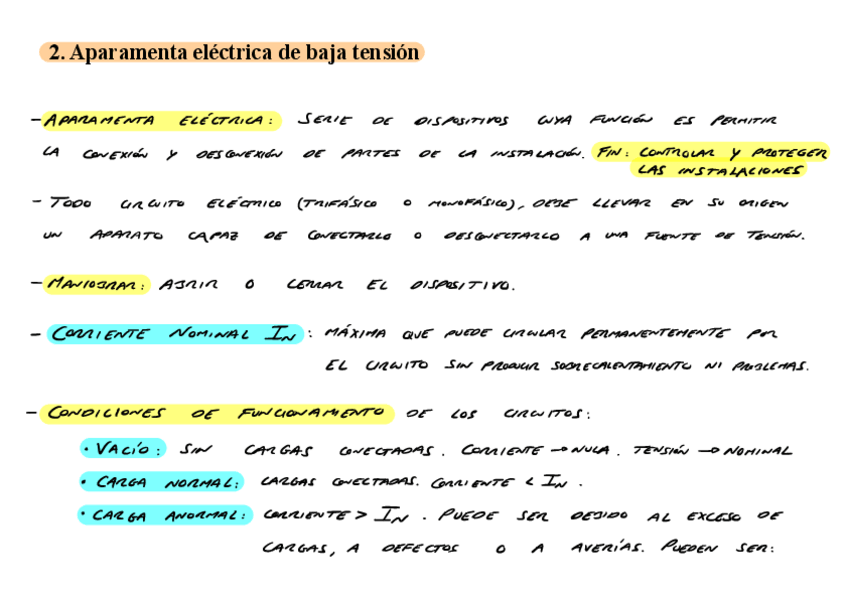 2. Aparamenta eléctrica de baja tensión
- APARAMENTA ELÉCTRICA: SERIE DE DISPOSITIVOS CUYA FUNCIÓN ES PERMITIR
LA CONEXIÓN Y DESCONEXIÓN DE PARTES DE LA INSTALACIÓN. FIN: CONTROLAR Y PROTEGER
LAS INSTALACIONES
- TODO CIRCUITO ELÉCTRICO (TRIFÁSICO O MONOFÁSICO), DEBE LLEVAR EN SU ORIGEN
UN APARATO CAPAZ DE CONECTARLO O DESCONECTARLO A UNA FUENTE DE TENSIÓN.
- MANIOBRAR: ABRIR O CERRAR EL DISPOSITIVO.
- CORRIENTE NOMINAL IN: MÁXIMA QUE PUEDE CIRCULAR PERMANENTEMENTE POR
EL CIRCUITO SIN PRODUCIR SOBRECALENTAMIENTO NI PROBLEMAS.
- CONDICIONES DE FUNCIONAMIENTO DE LOS CIRCUITOS:
• VACÍO: SIN CARGAS CONECTADAS. CORRIENTE → NULA. TENSIÓN → NOMINAL
• CARGA NORMAL: CARGAS CONECTADAS. CORRIENTE < IN.
• CARGA ANORMAL: CORRIENTE > IN. PUEDE SER DEBIDO AL EXCESO DE
CARGAS, A DEFECTOS O A AVERÍAS. PUEDEN SER: